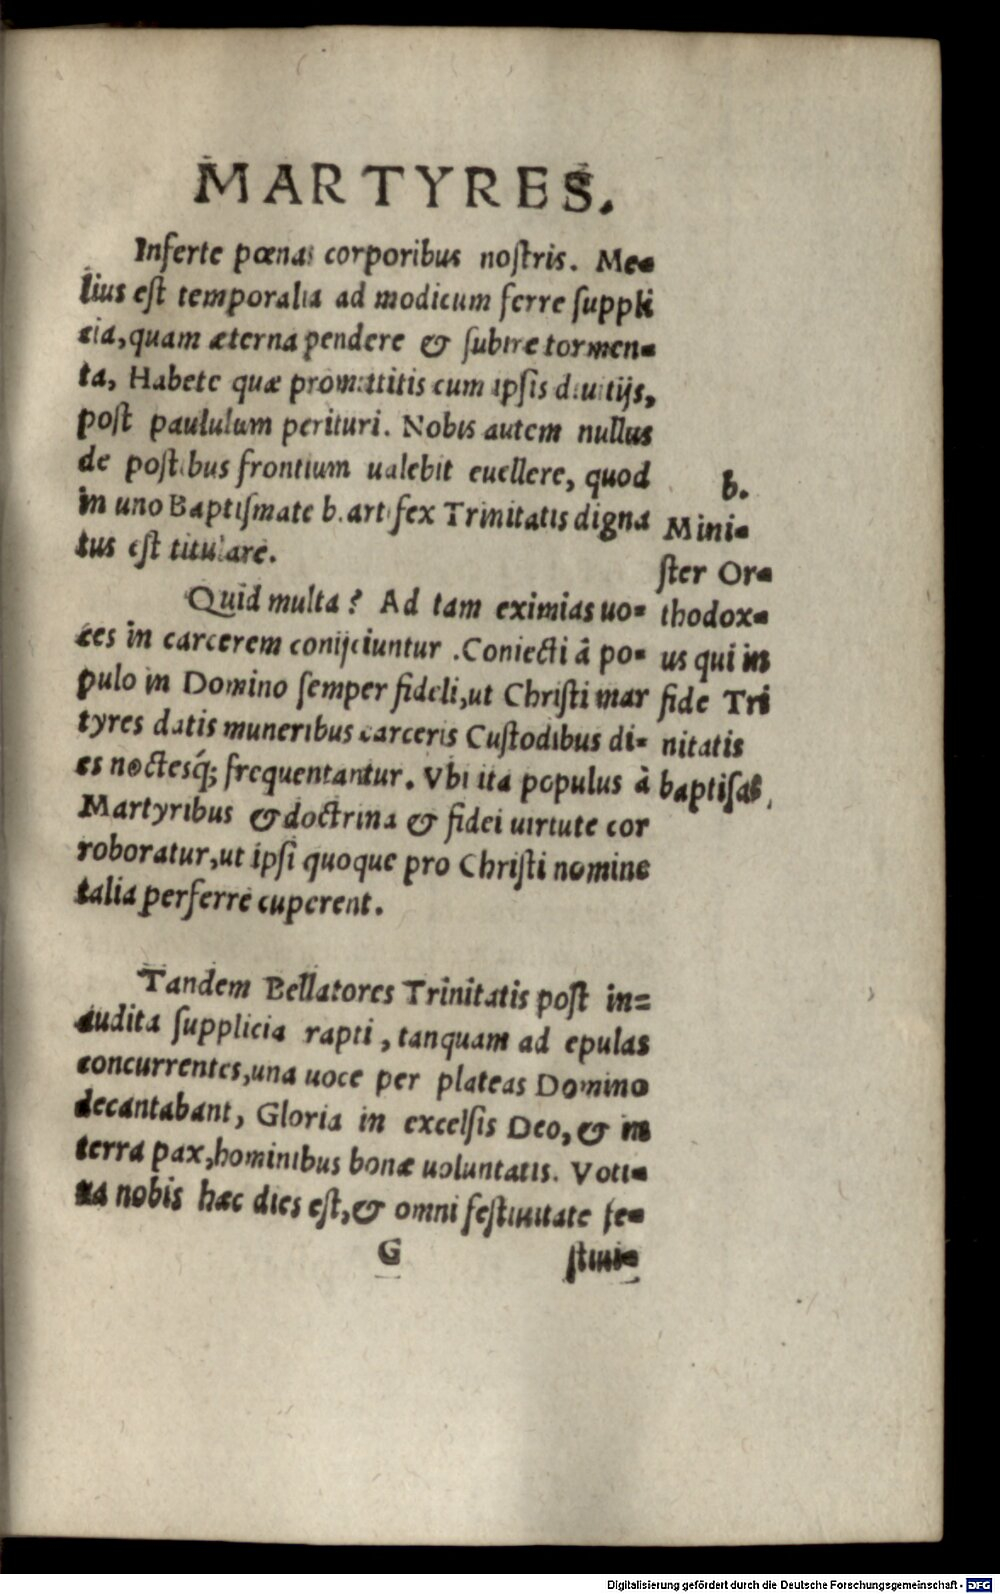 MARTYRES.
Inferte pœnas corporibus nostris. Me-
lius est temporalia ad modicum ferre suppli
cia, quam æterna pendere & subire tormen-
ta, Habete quæ promittitis cum ipsis diuitijs,
post paululum perituri. Nobis autem nullus
de postibus frontium ualebit euellere, quod
in uno Baptismate b. artifex Trinitatis digna
tus est titulare.
Quid multa? Ad tam eximias uo-
ces in carcerem conijciuntur. Coniecti à po-
pulo in Domino semper fideli, ut Christi mar
tyres datis muneribus carceris Custodibus di-
es noctesq́; frequentantur. Vbi ita populus à
Martyribus & doctrina & fidei uirtute cor
roboratur, ut ipsi quoque pro Christi nomine
talia perferre cuperent.
b.
Mini-
ster Or-
thodox-
us qui in
fide Tri
nitatis
baptisat,
Tandem Bellatores Trinitatis post in=
audita supplicia rapti, tanquam ad epulas
concurrentes, una uoce per plateas Domino
decantabant, Gloria in excelsis Deo, & in
terra pax, hominibus bonæ uoluntatis. Voti-
ua nobis hæc dies est, & omni festiuitate fe-
G stiui-
Digitalisierung gefördert durch die Deutsche Forschungsgemeinschaft - DFG